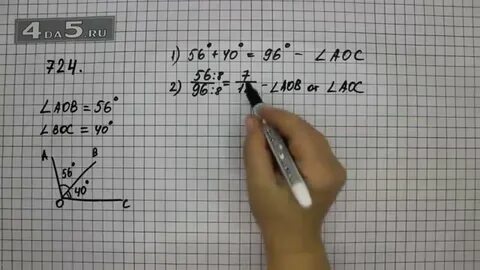 4DA5.RU
724.
∠AOB = 56°
∠BOC = 40°
A
B
56°
40°
O
C
1) 56° + 40° = 96° - ∠AOC
2) 56:8/96:8 = 7/1 - ∠AOB от ∠AOC